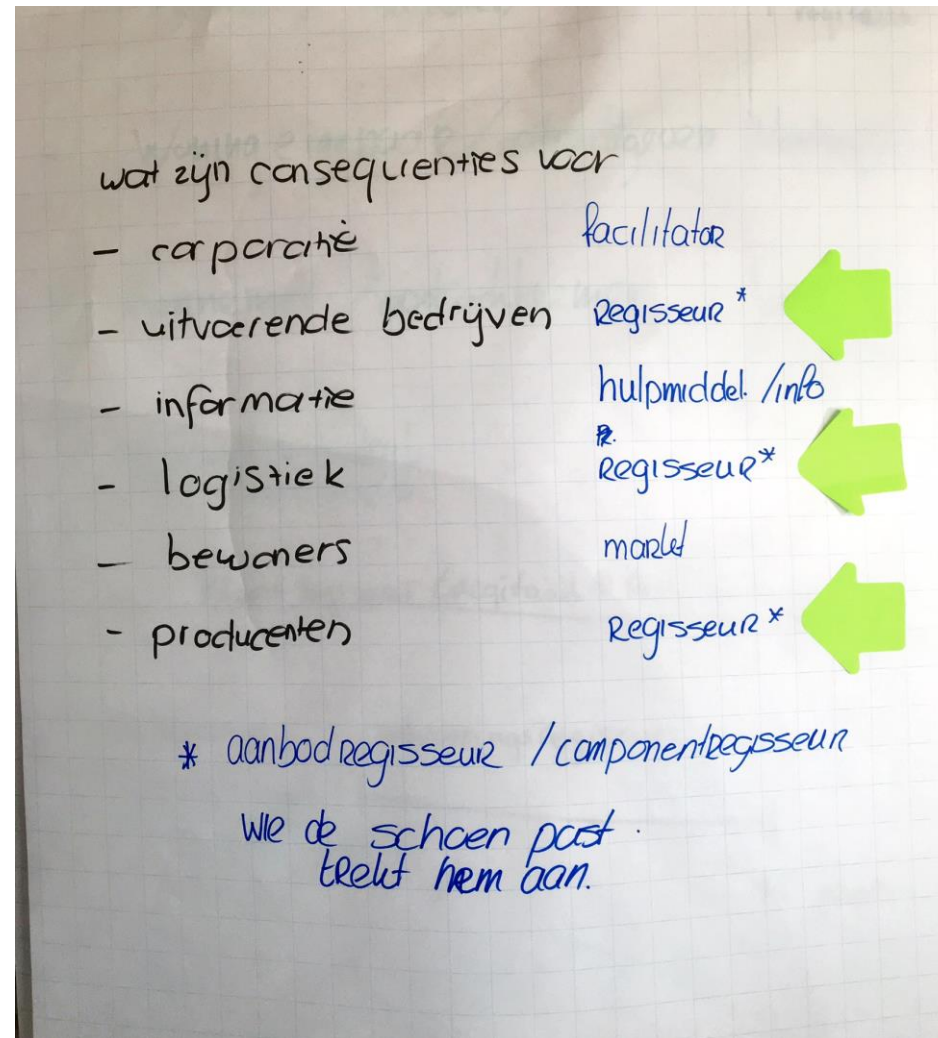 wat zijn consequenties voor
- corporatie facilitator
- uitvoerende bedrijven Regisseur *
- informatie hulpmiddel. /info
- logistiek Regisseur *
- bewoners markt
- producenten Regisseur *
* aanbodregisseur / componentregisseur
wie de schoen past.
trekt hem aan.